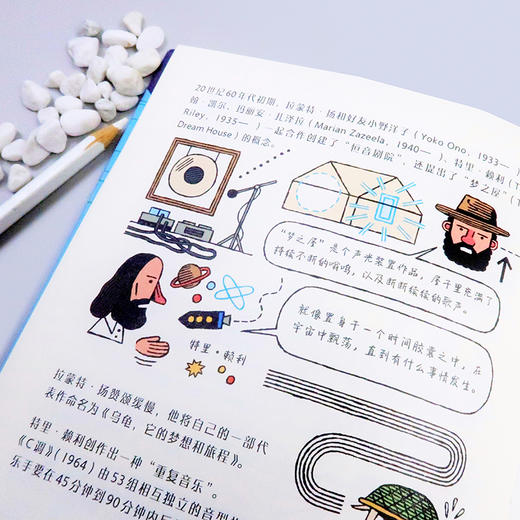 20世纪60年代初期，拉蒙特·扬和好友小野洋子（Yoko Ono，1933—
翰·凯尔、玛丽安·扎泽拉（Marian Zazeela，1940—　）、特里·赖利（T
Riley，1935—　）一起合作创建了“恒音剧院”，还提出了“梦之屋”（T
Dream House）的概念。
“梦之屋”是个声光装置作品，屋子里充满了
持续不断的嗡鸣，以及断断续续的歌声。
就像置身于一个时间胶囊之中，在
宇宙中飘荡，直到有什么事情发生。
特里·赖利
拉蒙特·扬赞颂缓慢，他将自己的一部代
表作命名为《乌龟，它的梦想和旅程》。
特里·赖利创作出一种“重复音乐”。
《C调》（1964）由53组相互独立的音型
乐手要在45分钟到90分钟内